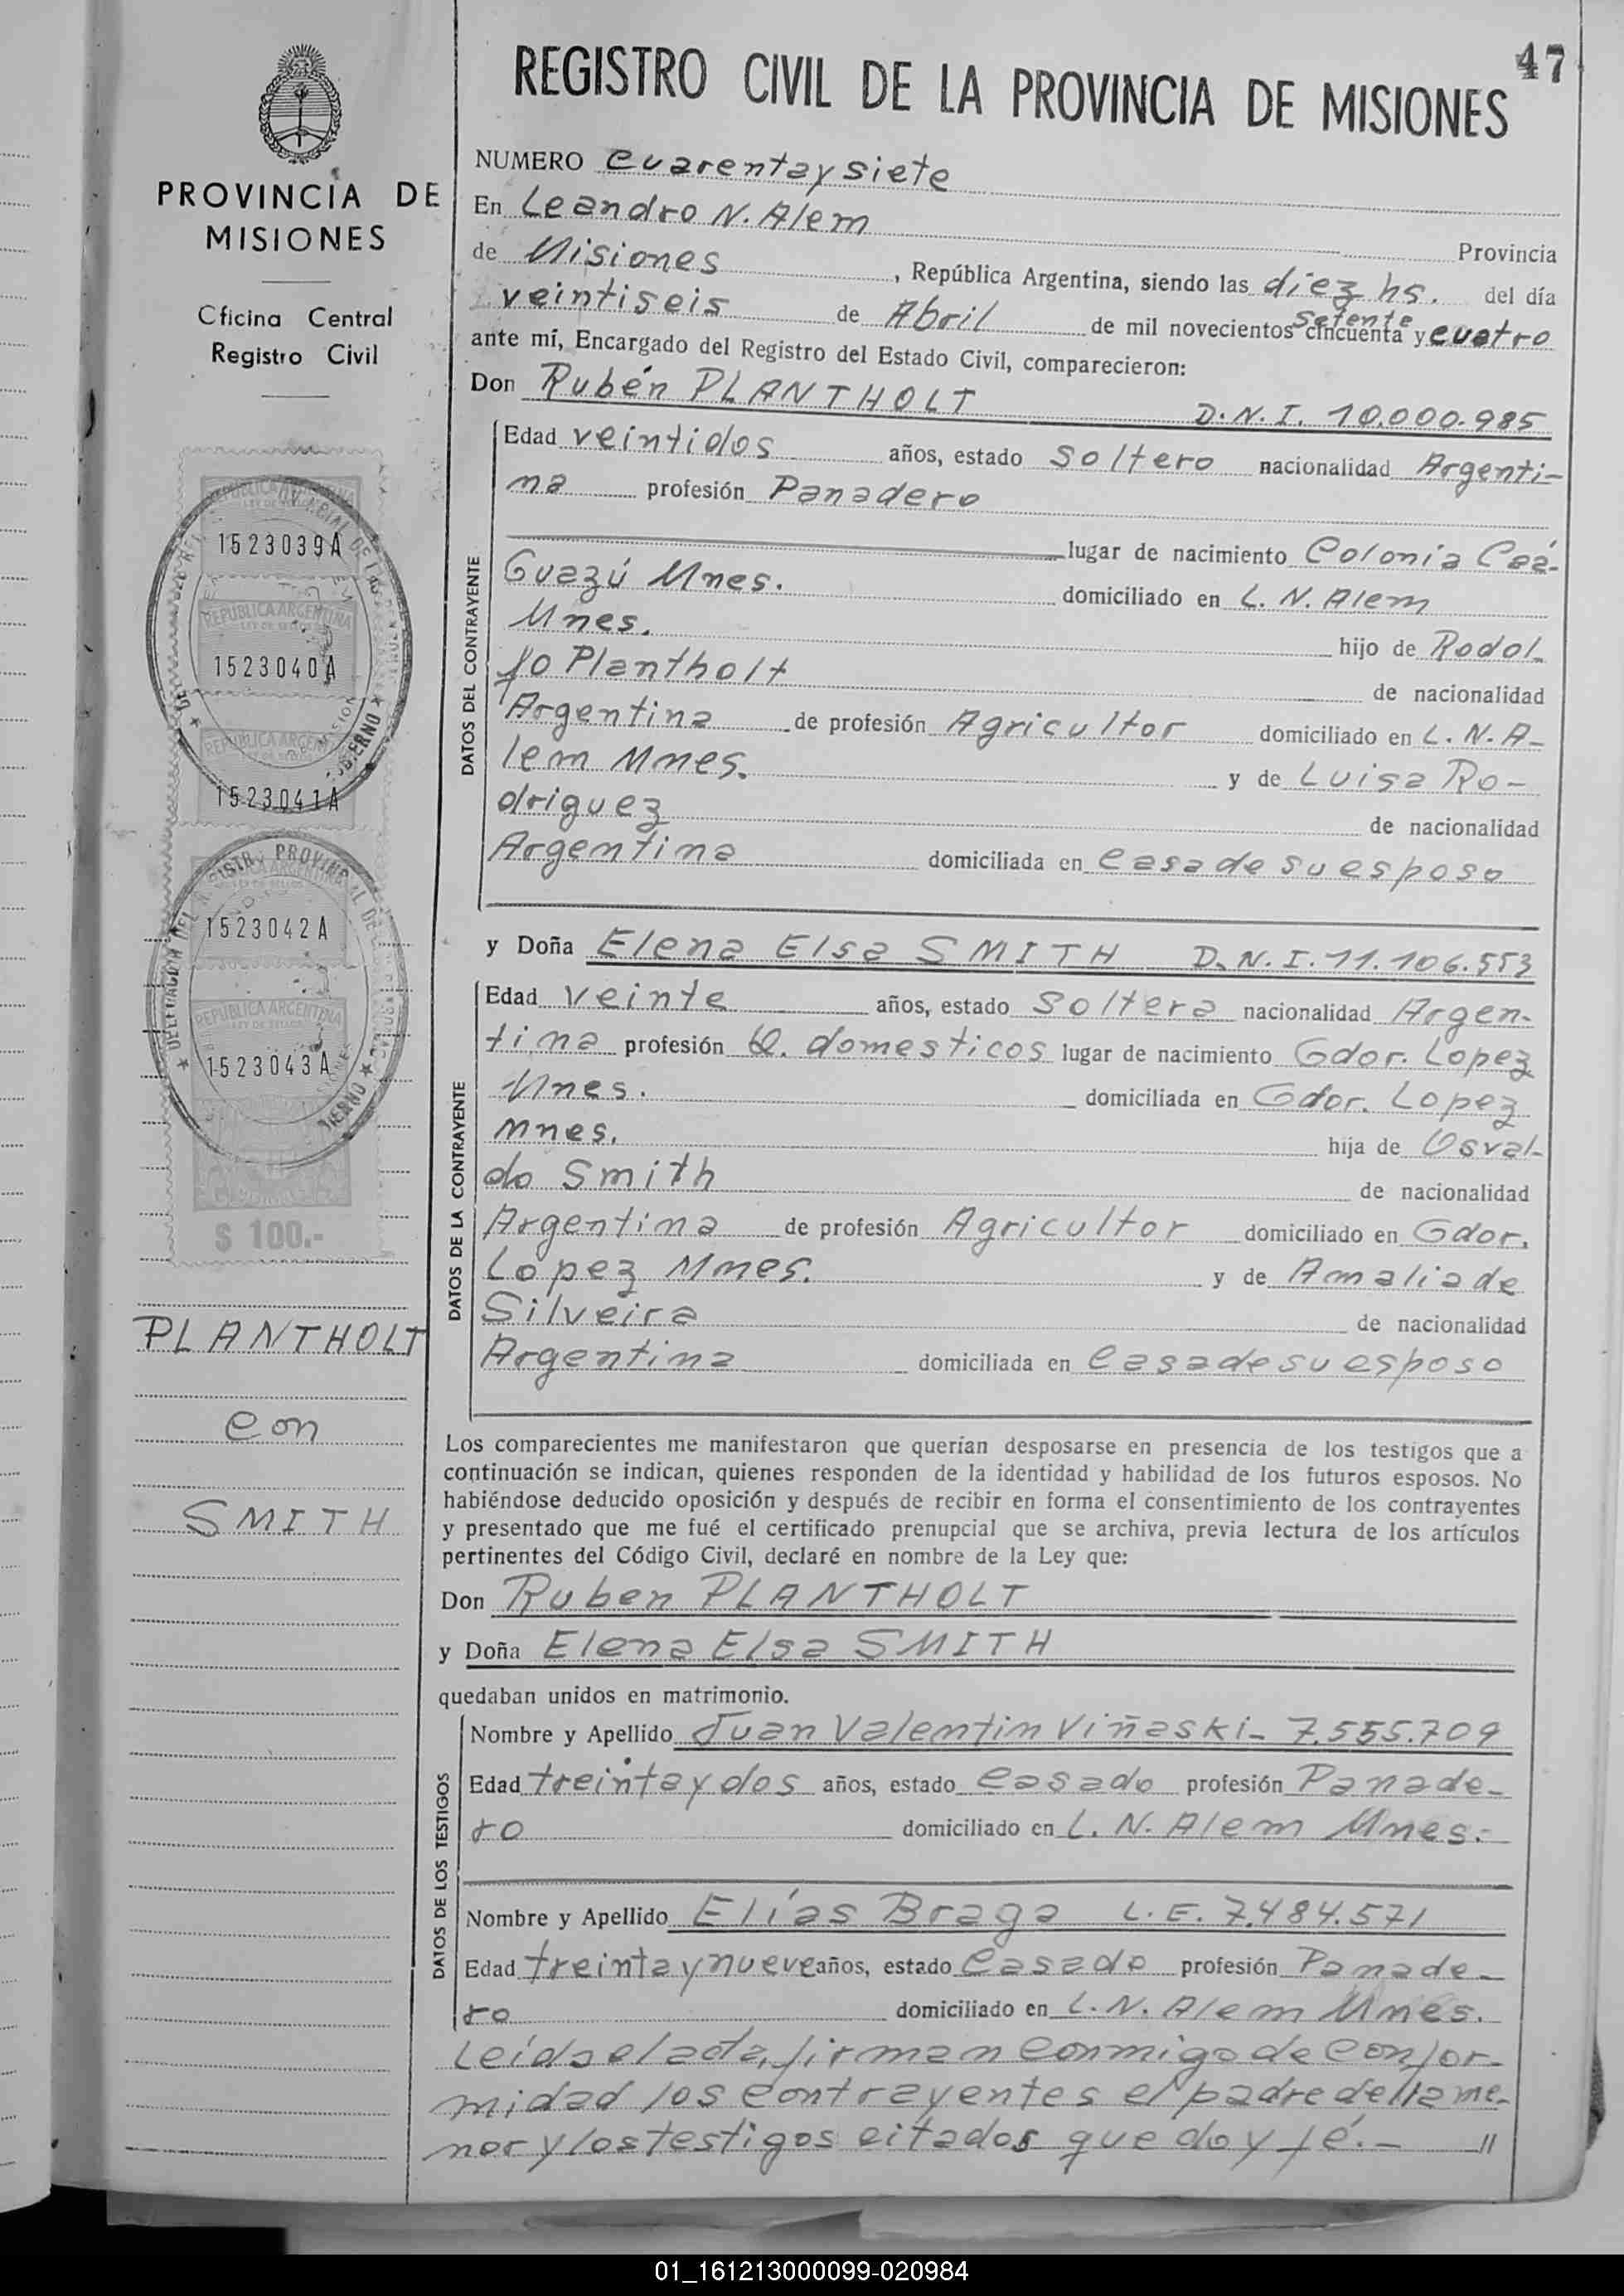 47
REGISTRO CIVIL DE LA PROVINCIA DE MISIONES
PROVINCIA DE
MISIONES
Oficina Central
Registro Civil
1523039A
REPUBLICA ARGENTINA
1523040A
1523041A
1523042A
REPUBLICA ARGENTINA
1523043A
$ 100.-
PLANTHOLT
con
SMITH
NUMERO cuarenta y siete
En Leandro N. Alem Provincia
de Misiones, República Argentina, siendo las diez hs. del día
veintiseis de Abril de mil novecientos setenta cincuenta y cuatro
ante mí, Encargado del Registro del Estado Civil, comparecieron:
Don Rubén PLANTHOLT D.N.I. 10.000.985
DATOS DEL CONTRAYENTE
Edad veintidos años, estado soltero nacionalidad Argenti-
na profesión Panadero
lugar de nacimiento Colonia Caá-
Guazú Mnes. domiciliado en L. N. Alem
Mnes. hijo de Rodol
fo Plantholt de nacionalidad
Argentina de profesión Agricultor domiciliado en L. N. A-
lem Mnes. y de Luisa Ro-
driguez de nacionalidad
Argentina domiciliada en casa de su esposo
y Doña Elena Elsa SMITH D.N.I. 11.106.553
DATOS DE LA CONTRAYENTE
Edad veinte años, estado soltera nacionalidad Argen-
tina profesión Q. domesticos lugar de nacimiento Gdor. Lopez
Mnes. domiciliada en Gdor. Lopez
Mnes. hija de Osval-
do Smith de nacionalidad
Argentina de profesión Agricultor domiciliado en Gdor.
Lopez Mnes. y de Amalia de
Silveira de nacionalidad
Argentina domiciliada en casa de su esposo
Los comparecientes me manifestaron que querían desposarse en presencia de los testigos que a
continuación se indican, quienes responden de la identidad y habilidad de los futuros esposos. No
habiéndose deducido oposición y después de recibir en forma el consentimiento de los contrayentes
y presentado que me fué el certificado prenupcial que se archiva, previa lectura de los artículos
pertinentes del Código Civil, declaré en nombre de la Ley que:
Don Ruben PLANTHOLT
y Doña Elena Elsa SMITH
quedaban unidos en matrimonio.
DATOS DE LOS TESTIGOS
Nombre y Apellido Juan Valentin Viñaski- 7.555.709
Edad treinta y dos años, estado casado profesión Panade-
ro domiciliado en L. N. Alem Mnes.-
Nombre y Apellido Elías Braga L.E. 7.484.571
Edad treinta y nueve años, estado casado profesión Panade-
ro domiciliado en L. N. Alem Mnes.
Leída el acta, firman conmigo de confor-
midad los contrayentes el padre de la me-
nor y los testigos citados que doy fé.- //
01_161213000099-020984